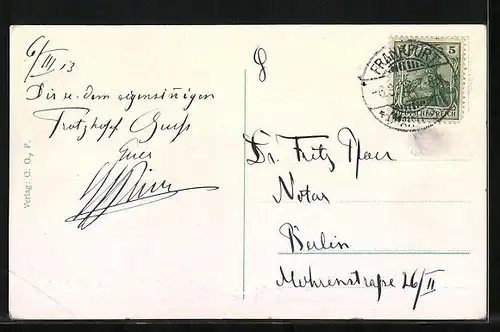 6/III 13
Dir u. dem eigensinnigen
Trotzkopf Gruß
Euer
Dr. Fritz
Notar
Berlin
Mohrenstraße 26/II
FRANKFURT
5
DEUTSCHES REICH
Verlag: G. O., F.